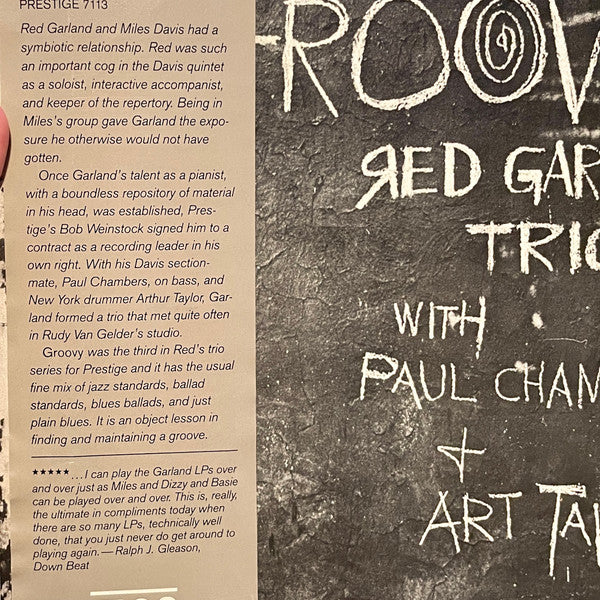 PRESTIGE 7113
Red Garland and Miles Davis had a
symbiotic relationship. Red was such
an important cog in the Davis quintet
as a soloist, interactive accompanist,
and keeper of the repertory. Being in
Miles's group gave Garland the expo-
sure he otherwise would not have
gotten.
Once Garland's talent as a pianist,
with a boundless repository of material
in his head, was established, Pres-
tige's Bob Weinstock signed him to a
contract as a recording leader in his
own right. With his Davis section-
mate, Paul Chambers, on bass, and
New York drummer Arthur Taylor, Gar-
land formed a trio that met quite often
in Rudy Van Gelder's studio.
Groovy was the third in Red's trio
series for Prestige and it has the usual
fine mix of jazz standards, ballad
standards, blues ballads, and just
plain blues. It is an object lesson in
finding and maintaining a groove.
★★★★★ ...I can play the Garland LPs over
and over just as Miles and Dizzy and Basie
can be played over and over. This is, really,
the ultimate in compliments today when
there are so many LPs, technically well
done, that you just never do get around to
playing again.—Ralph J. Gleason,
Down Beat
ROOV
RED GAR
TRIO
WITH
PAUL CHAM
+
ART TA